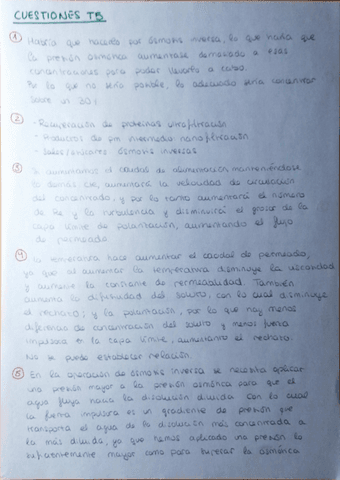 CUESTIONES T5
① Habría que hacerlo por ósmosis inversa, lo que haría que
la presión osmótica aumentase demasiado a esas
concentraciones para poder llevarlo a cabo.
Por lo que no sería posible, lo adecuado sería concentrar
sobre un 30%
② - Recuperación de proteínas ultrafiltración
- Productos de pm intermedio nanofiltración
- Sales/azúcares ósmosis inversas
③ Si aumentamos el caudal de alimentación manteniéndose
lo demás cte, aumentará la velocidad de circulación
del concentrado, y por lo tanto aumentará el número
de Re y la turbulencia y disminuirá el grosor de la
capa límite de polarización, aumentando el flujo
de permeado
④ La temperatura hace aumentar el caudal de permeado,
ya que al aumentar la temperatura disminuye la viscosidad
y aumenta la constante de permeabilidad. También
aumenta la difusividad del soluto, con lo cual disminuye
el rechazo, y la polarización, por lo que hay menos
diferencia de concentración del soluto y menos fuerza
impulsora en la capa límite, aumentando el rechazo.
No se puede establecer relación.
⑤ En la operación de ósmosis inversa se necesita aplicar
una presión mayor a la presión osmótica para que el
agua fluya hacia la disolución diluida con lo cual
la fuerza impulsora es un gradiente de presión que
transporta el agua de la disolución más concentrada a
la más diluida, ya que hemos aplicado una presión lo
suficientemente mayor como para superar la osmótica